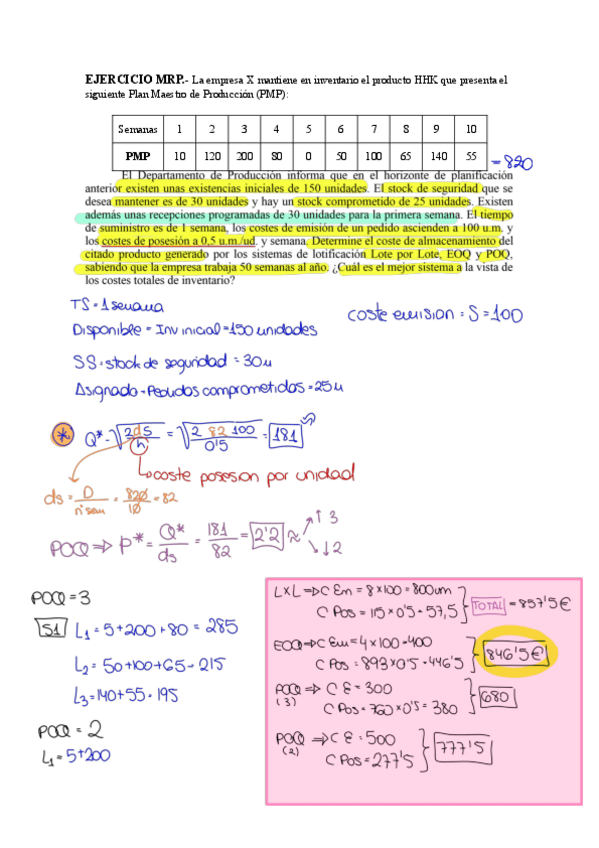 EJERCICIO MRP.- La empresa X mantiene en inventario el producto HHK que presenta el
siguiente Plan Maestro de Producción (PMP):
Semanas 1 2 3 4 5 6 7 8 9 10
PMP 10 120 200 80 0 50 100 65 140 55 = 820
El Departamento de Producción informa que en el horizonte de planificación
anterior existen unas existencias iniciales de 150 unidades. El stock de seguridad que se
desea mantener es de 30 unidades y hay un stock comprometido de 25 unidades. Existen
además unas recepciones programadas de 30 unidades para la primera semana. El tiempo
de suministro es de 1 semana, los costes de emisión de un pedido ascienden a 100 u.m. y
los costes de posesión a 0,5 u.m./ud. y semana. Determine el coste de almacenamiento del
citado producto generado por los sistemas de lotificación Lote por Lote, EOQ y POQ,
sabiendo que la empresa trabaja 50 semanas al año. ¿Cuál es el mejor sistema a la vista de
los costes totales de inventario?
TS = 1 semana
coste emision = S = 100
Disponible = Inv inicial = 150 unidades
SS = stock de seguridad = 30u
Asignado = Pedidos comprometidos = 25u
* Q* = √2dS/h = √2 82 100/0'5 = 181
↳ coste posesion por unidad
ds = D/nºsem = 820/10 = 82
POQ ⇒ P* = Q*/ds = 181/82 = 2'2 ≈ ↑ 3 ↓ 2
POQ = 3
S1 L1 = 5+200+80 = 285
L2 = 50+100+65 = 215
L3 = 140+55 = 195
POQ = 2
L1 = 5+200
LXL ⇒ C Em = 8x100 = 800um
C Pos = 115x0'5 = 57,5 TOTAL = 857'5€
EOQ ⇒ C Em = 4x100 = 400
C Pos = 893x0'5 = 446'5 846'5€
POQ (3) ⇒ C E = 300
C Pos = 760x0'5 = 380 680
POQ (2) ⇒ C E = 500
C Pos = 277'5 777'5